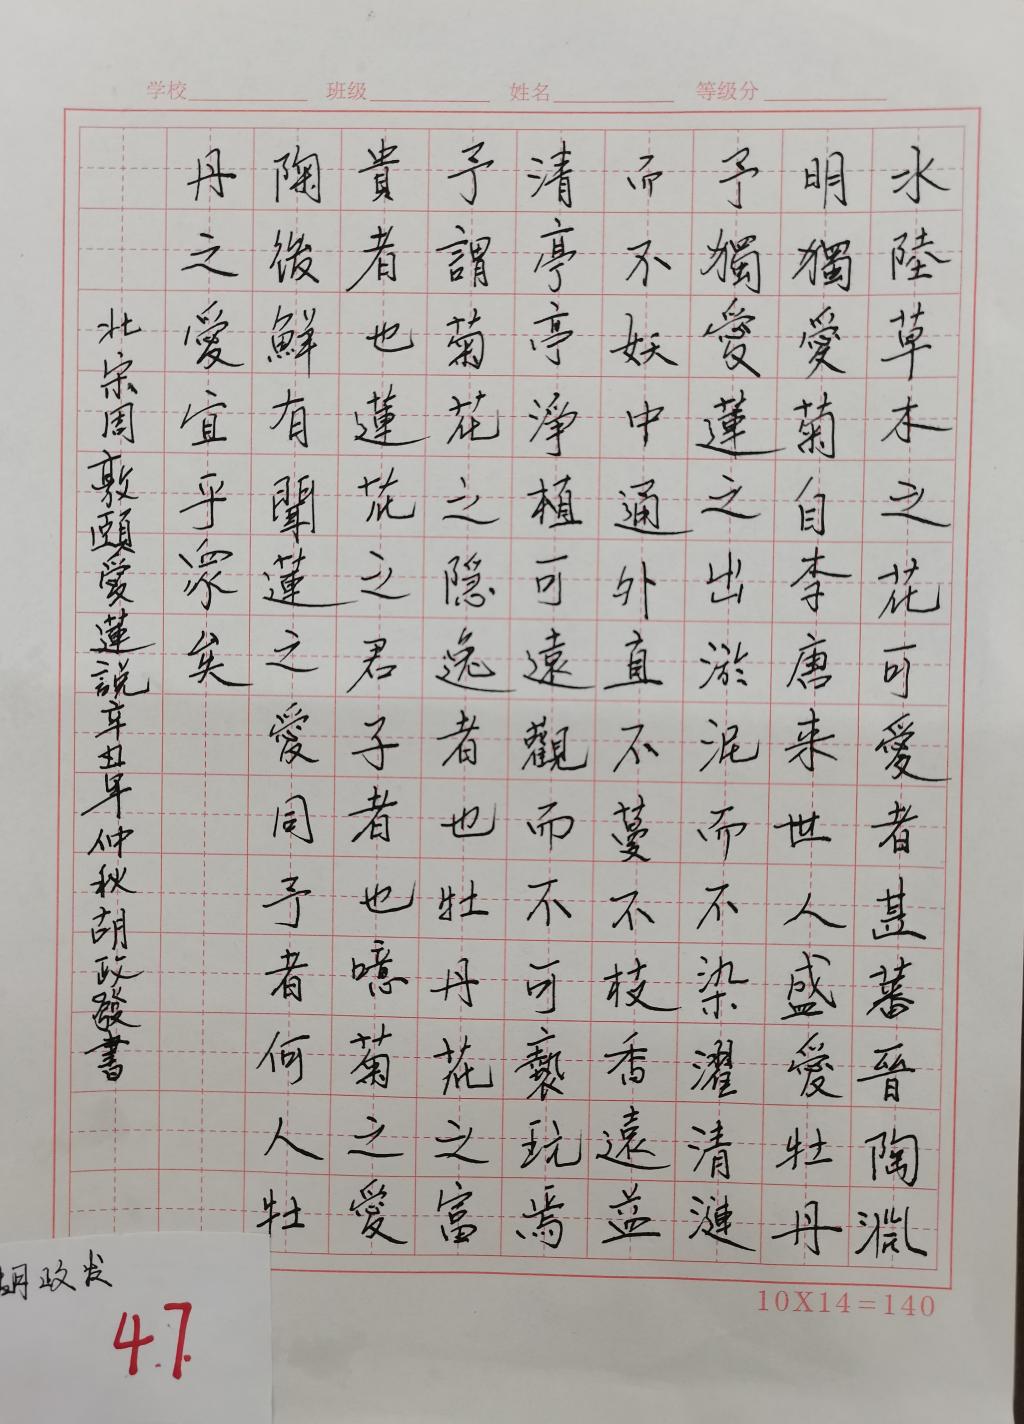 学校 班级 姓名 等级分
水陸草木之花可愛者甚蕃晉陶淵
明獨愛菊自李唐来世人盛愛牡丹
予獨愛蓮之出淤泥而不染濯清漣
而不妖中通外直不蔓不枝香遠益
清亭亭淨植可遠觀而不可褻玩焉
予謂菊花之隐逸者也牡丹花之富
貴者也蓮花之君子者也噫菊之愛
陶後鮮有聞蓮之愛同予者何人牡
丹之愛宜乎眾矣
北宋周敦頤愛蓮説辛丑年仲秋胡政發書
10X14=140
胡政发
47